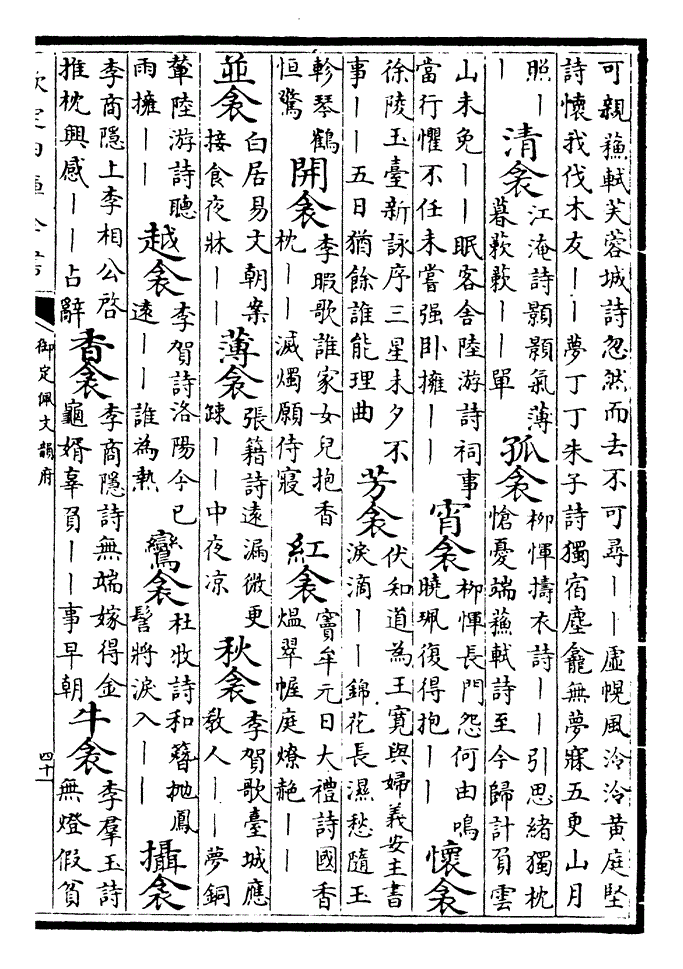 可親蘓軾芙蓉城詩忽然而去不可尋丨丨虛幌風泠泠黄庭堅
詩懷我伐木友丨丨夢丁丁朱子詩獨宿塵龕無夢寐五更山月
照丨
丨
清衾
江淹詩顥顥氣薄
暮蔌蔌丨丨單
孤衾
柳惲擣衣詩丨丨引思緒獨枕
愴憂端蘓軾詩至今歸計負雲
山未免丨丨眠客舍陸游詩祠事
當行懼不任未嘗强卧擁丨丨
宵衾
柳惲長門怨何由鳴
曉珮復得抱丨丨
懷衾
徐陵玉臺新詠序三星未夕不
事丨丨五日猶餘誰能理曲
芳衾
伏知道為王寛與婦義安主書
淚滴丨丨錦花長濕愁隨玉
軫琴鶴
恒驚
開衾
李暇歌誰家女兒抱香
枕丨丨滅燭願侍寢
紅衾
竇牟元日大禮詩國香
熅翠幄庭燎赩丨丨
並衾
白居易文朝案
接食夜牀丨丨
薄衾
張籍詩遠漏微更
踈丨丨中夜凉
秋衾
李賀歌臺城應
敎人丨丨夢銅
輦陸游詩聽
雨擁丨丨
越衾
李賀詩洛陽今已
遠丨丨誰為熱
鸞衾
杜牧詩和簪抛鳳
髻將淚入丨丨
攝衾
李商隱上李相公啓
推枕興感丨丨占辭
香衾
李商隱詩無端嫁得金
龜婿辜負丨丨事早朝
牛衾
李羣玉詩
無燈假貧
欽定四庫全書
御定佩文韻府
四十